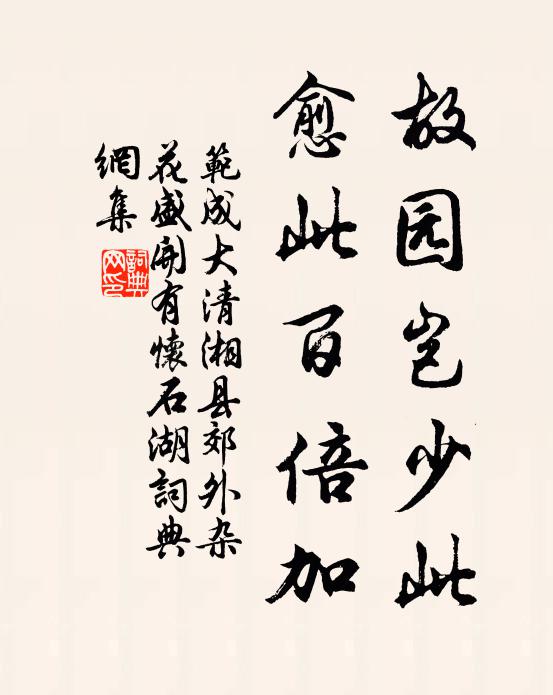 故园岂少此
愈此百倍加
範成大清湘县郊外杂
花盛開有懷石湖詞典
網集
詞典
网印